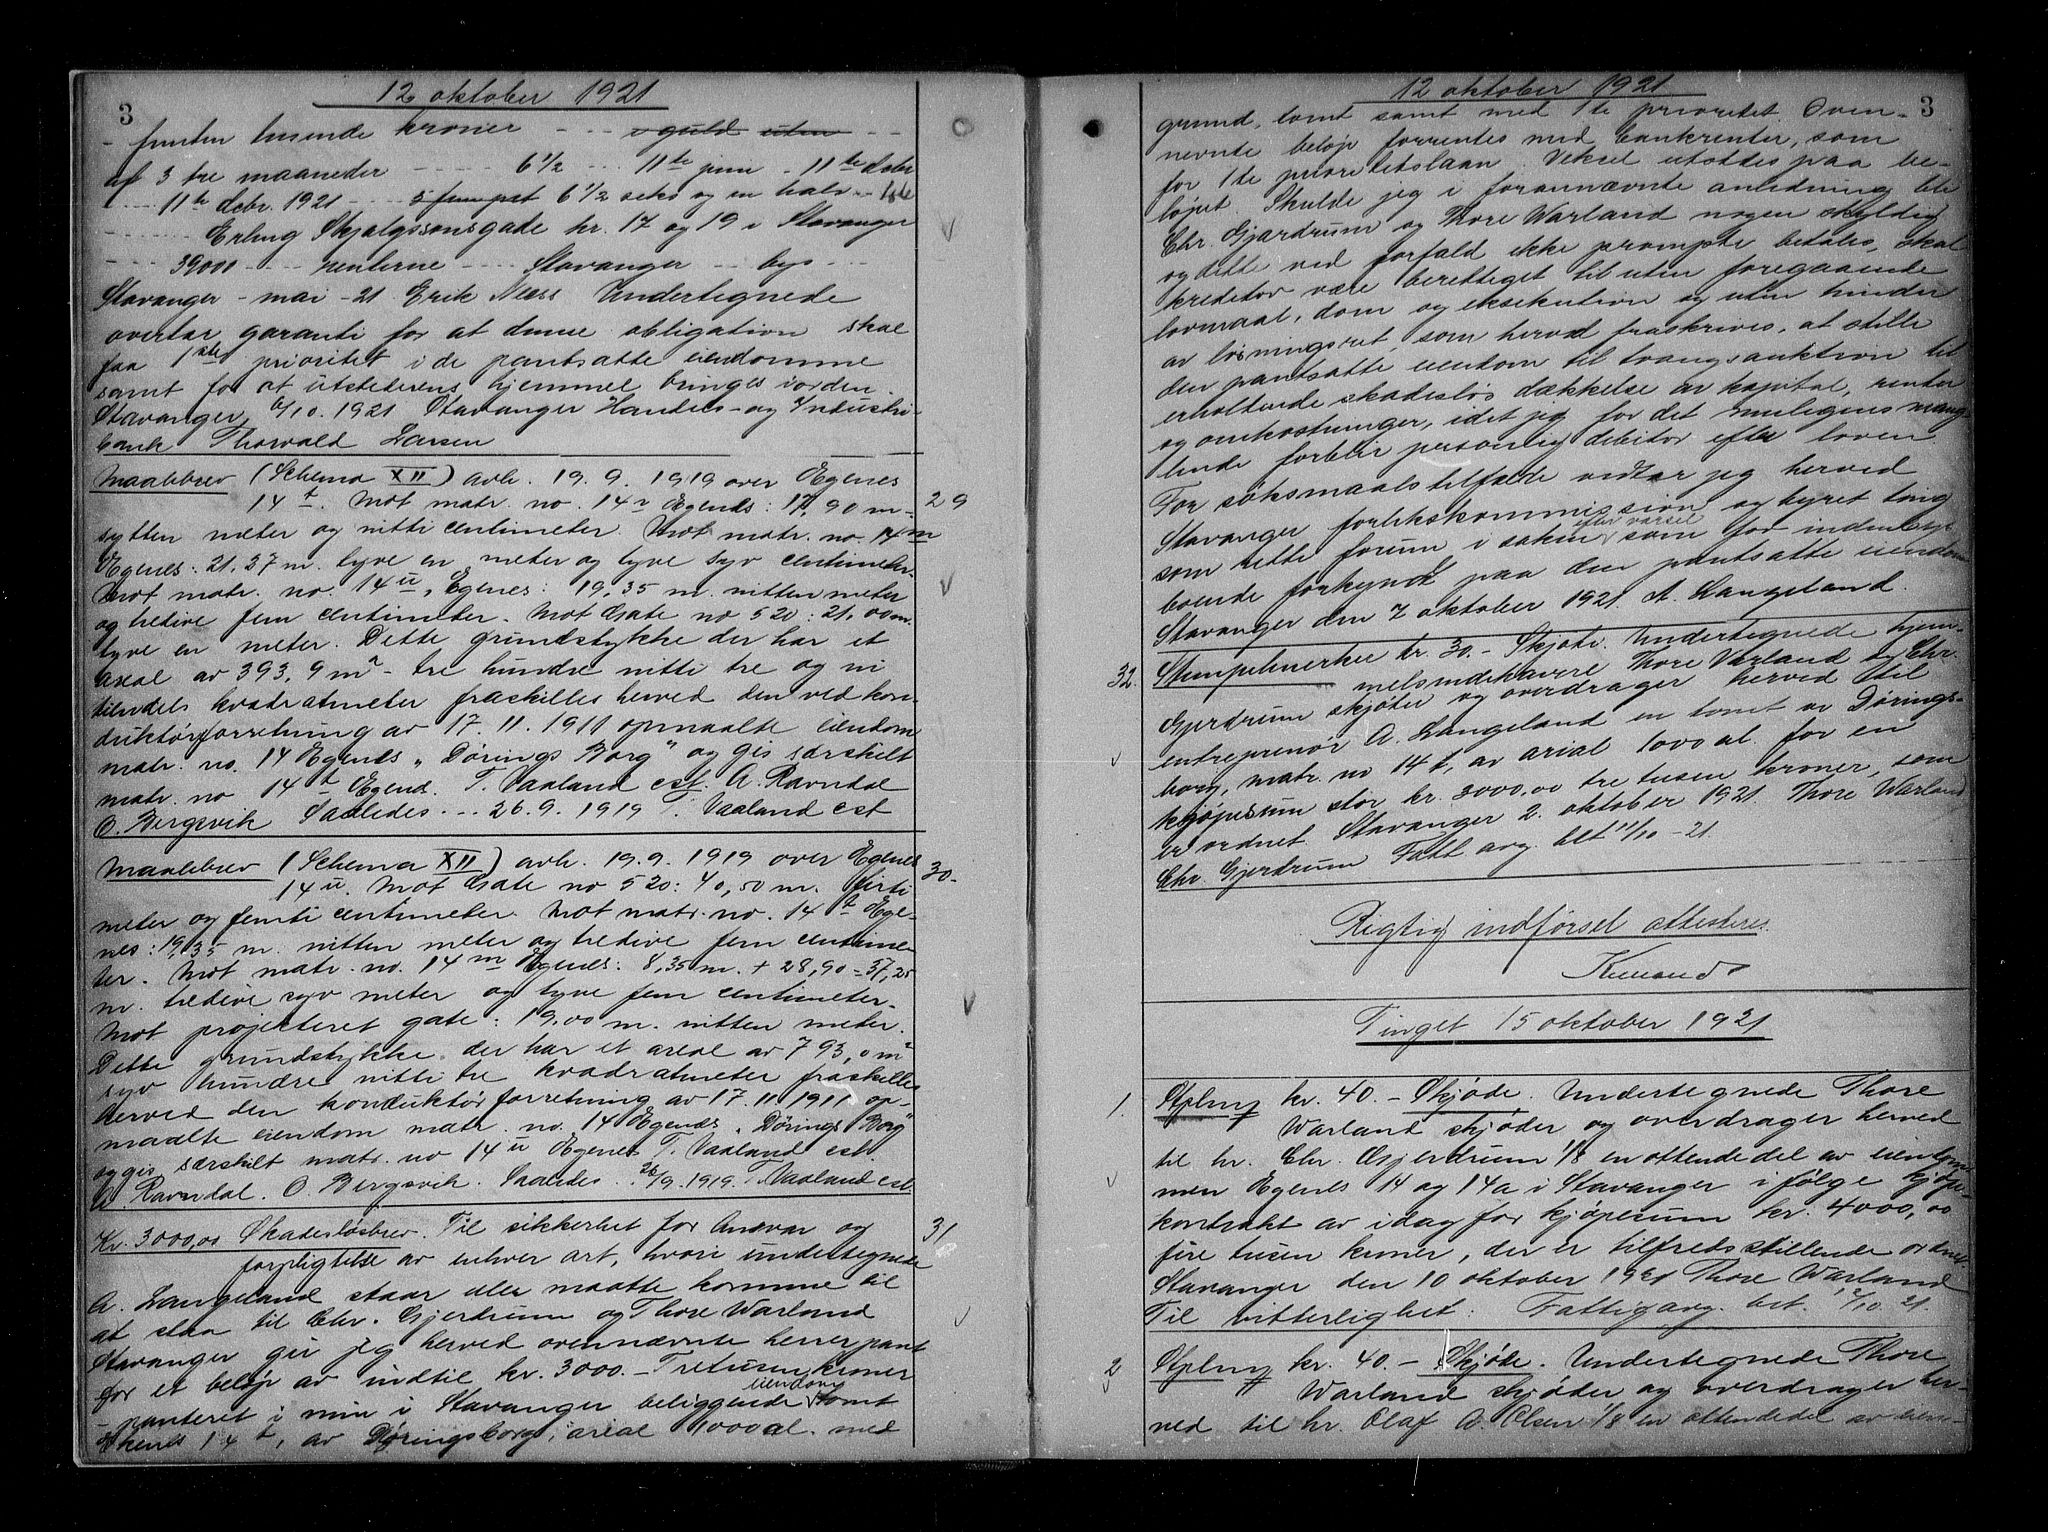 3
12 oktober 1921
- femten tusende kroner - - - i guld uten - -
af 3 tre maaneder - - - - 6 1/2 - - - 11te juni - 11te debr
- - - 11te debr. 1921 - - - 5 fem pct 6 1/2 seks og en halv - - 1ste
- - - - - Erling Skjalgssonsgade nr. 17 og 19 i Stavanger
- - - 39000 - - - renterne - - - Stavanger - - bys - - -
Stavanger - mai - 21 Erik Næss Undertegnede
overtar garanti for at denne obligation skal
faa 1ste prioritet i de pantsatte eiendomme
samt for at utstederens hjemmel bringes i orden.
Stavanger, 6/10. 1921 Stavanger Handels- og Industri-
bank Thorvald Larsen
Maalebrev (Schema XII) avh. 19. 9. 1919 over Egenes
14 t. Mot matr. no. 14 n Egenes: 17,90 m - 29
sytten meter og nitti centimeter. Mot matr. no. 14 m
Egenes: 21.27 m. tyve en meter og tyve syv centimeter.
Mot matr. no. 14 u, Egenes: 19,35 m. nitten meter
og tredive fem centimeter. Mot Gate no 520: 21,00 m.
tyve en meter. Dette grundstykke der har et
areal av 393,9 m² - tre hundre nitti tre og ni
tiendels kvadratmeter fraskilles herved den ved kon-
duktørforretning av 17. 11. 1911 opmaalte eiendom
matr. no. 14 Egenes "Dørings Borg" og gis særskilt
matr. no 14 t Egenes. T. Vaaland cst. A. Ravndal
O. Bergsvik Saaledes - - - 26. 9. 1919 T. Vaaland cst
Maalebrev (Schema XII) avh. 19. 9. 1919 over Egenes 30.
14 u. Mot Gate no 520: 40,50 m. firti
meter og femti centimeter. Mot matr. no. 14 t Ege-
nes: 19,35 m. nitten meter og tredive fem centime-
ter. Mot matr. no. 14 m Egenes: 8,35 m. + 28,90 = 37,25
m. tredive syv meter og tyve fem centimeter.
Mot projekteret gate: 19,00 m. nitten meter.
Dette grundstykke der har et areal av 793,0 m²
syv hundre nitti tre kvadratmeter fraskilles
herved den konduktørforretning av 17. 11 1911 op-
maalte eiendom matr. no. 14 Egenes "Dørings Borg"
og gis særskilt matr. no 14 u Egenes T. Vaaland cst.
A. Ravndal. O. Bergsvik. Saaledes. 26/9. 1919. T. Vaaland cst.
Kr. 3000,00 Skadesløsbrev. Til sikkerhet for Ansvar og 31
forpligtelse av enhver art, hvori undertegnede
A. Langeland staar eller maatte komme til
at staa til Chr. Gjerdrum og Thore Warland
Stavanger gir jeg herved ovennævnte herrer pant
for et beløp av indtil kr. 3000. - Tretusen kroner
- panteret i min i Stavanger beliggende eiendom tomt
Egenes 14 t, av Døringsborg, areal 1000 al. med
12 oktober 1921
3
grund, tomt samt med 1te prioritet. Oven-
nevnte beløp forrentes med bankrenter, som
for 1te prioritetslaan. Veksel utstedes paa be-
løpet. Skulde jeg i forannævnte anledning bli
Chr. Gjerdrum og Thore Warland nogen skyldig
og dette ved forfald ikke prompte betales, skal
kreditor være berettiget til uten foregaaende
lovmaal, dom og eksekution og uten hinder
av løsningsret, som herved fraskrives, at stille
den pantsatte eiendom til tvangsauktion til
erholdende skadesløs dækkelse av kapital, renter
og omkostninger, idet jeg for det muligens mang-
lende forblir personlig debitor efter loven
For søksmaalstilfælde vedtar jeg herved
Stavanger forlikskommission og byret ting
som rette forum i saken efter varsel som for indenbys
boende forkyndt paa den pantsatte eiendom
Stavanger den 7 oktober 1921. A. Langeland.
32. Stempelmerker kr. 30. - Skjøte. Undertegnede hjem-
melsindehavere Thore Varland og Chr.
Gjerdrum skjøter og overdrager herved til
entreprenør A. Langeland en tomt av Dørings-
borg, matr. no 14 t, av areal 1000 al. for en
kjøpesum stor kr. 3000,00 tre tusen kroner, som
er ordnet. Stavanger 2. oktober 1921. Thore Warland
Chr. Gjerdrum Fatt avg. blt 11/10 - 21.
Rigtig indførsel attesteres.
Tinget 15 oktober 1921
1. Stplmrk kr. 40. - Skjøde. Undertegnede Thore
Warland skjøder og overdrager herved
til hr. Chr. Gjerdrum 1/8 en ottende del av eiendom-
men Egenes 14 og 14 a i Stavanger i følge kjøpe-
kontrakt av idag for kjøpesum kr. 4000,00
fire tusen kroner, der er tilfredsstillende ordnet
Stavanger den 10 oktober 1921 Thore Warland
Til vitterlighet: Fattigavg. bet. 12/10. 21.
2 Stplmrk kr. 40. - Skjøde. Undertegnede Thore
Warland skjøder og overdrager her-
ved til hr. Olaf A. Olsen 1/8 en ottendedel av eien-